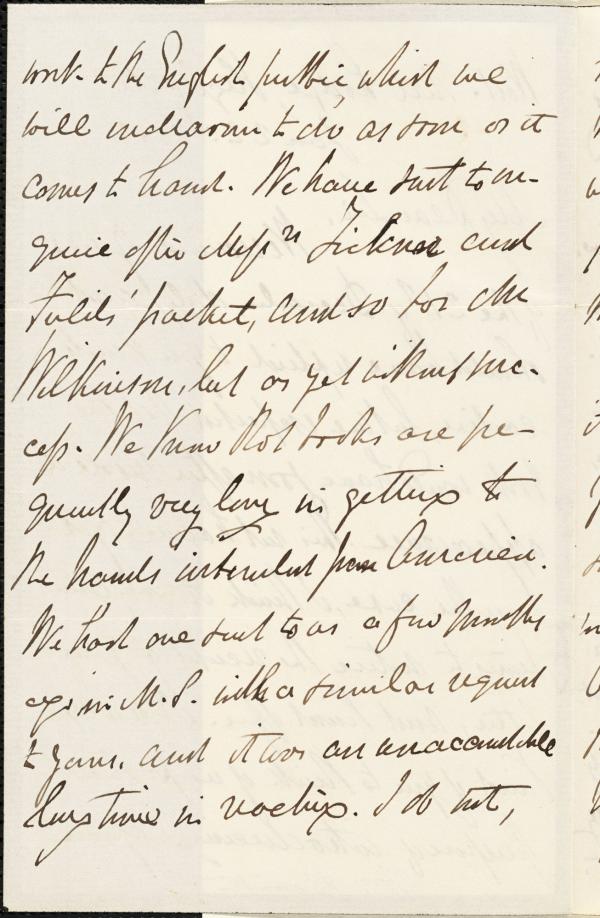 work to the English public, which we
will endeavour to do as soon as it
comes to hand. We have sent to in-
quire after Messrs Ticknor and
Fields' packet, and so has Mr
Wilkinson, but as yet without suc-
cess. We know that books are fre-
quently very long in getting to
the hands intended from America.
We had one sent to us a few months
ago in M.S. with a similar request
to yours, and it was an unaccountable
long time in reaching. I do not,